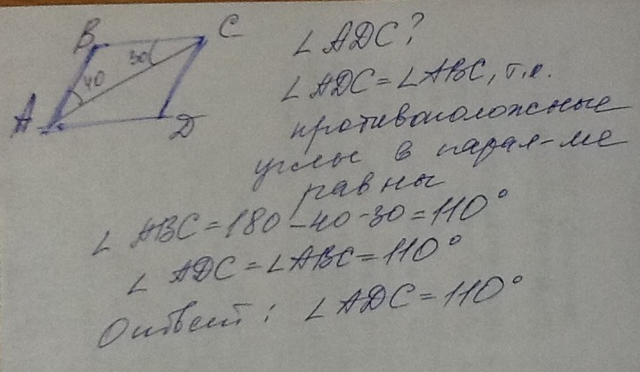 B C
30
40
A D
∠ ADC?
∠ ADC = ∠ABC, т.к.
противоположные
углы в парал-ме
равны
∠ ABC = 180 - 40 - 30 = 110°
∠ ADC = ∠ABC = 110°
Ответ: ∠ ADC = 110°